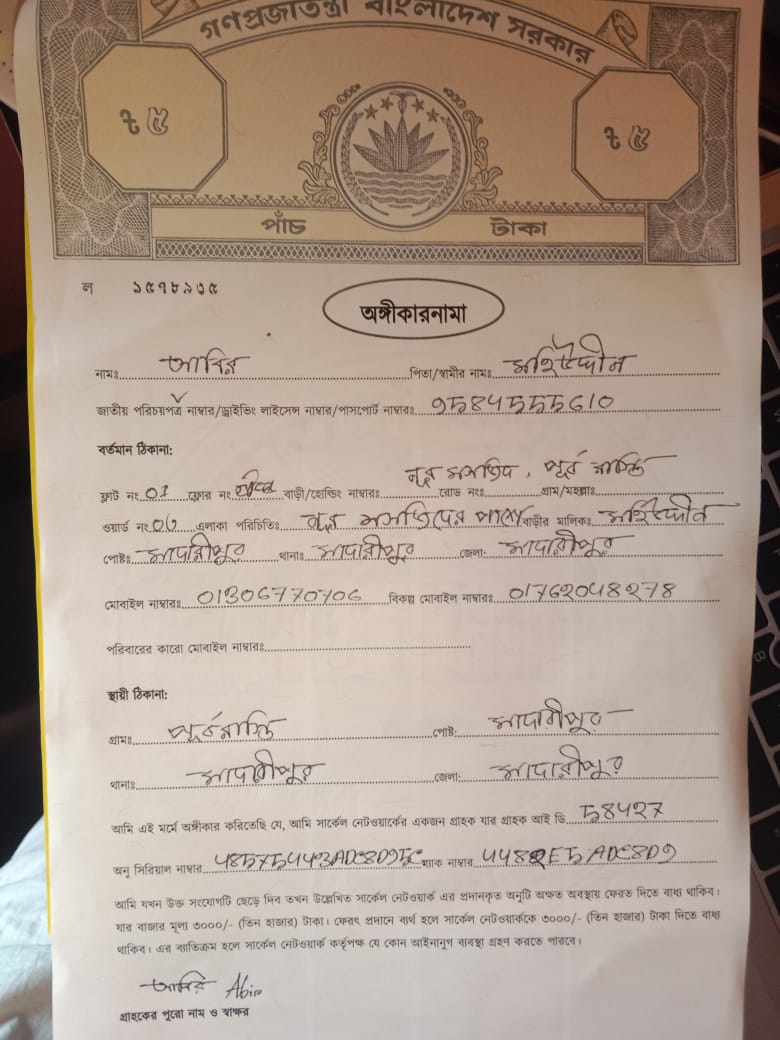 গণপ্রজাতন্ত্রী বাংলাদেশ সরকার
৳ ৫ ৳ ৫
পাঁচ টাকা
ল ১৫৭৮৯৩৫
অঙ্গীকারনামা
নামঃ আবির পিতা/স্বামীর নামঃ মহিউদ্দীন
জাতীয় পরিচয়পত্র নাম্বার/ড্রাইভিং লাইসেন্স নাম্বার/পাসপোর্ট নাম্বারঃ 9584555610
বর্তমান ঠিকানা:
ফ্লাট নং 01 ফ্লোর নং বাড়ী/হোল্ডিং নাম্বারঃ নূর মসজিদ, রোড নংঃ পূর্ব রাস্তি গ্রাম/মহল্লাঃ
ওয়ার্ড নং 06 এলাকা পরিচিতিঃ নূর মসজিদের পাশে বাড়ীর মালিকঃ মহিউদ্দীন
পোষ্টঃ মাদারীপুর থানাঃ মাদারীপুর জেলা: মাদারীপুর
মোবাইল নাম্বারঃ 01306770706 বিকল্প মোবাইল নাম্বারঃ 01762048278
পরিবারের কারো মোবাইল নাম্বারঃ
স্থায়ী ঠিকানা:
গ্রামঃ পূর্বরাস্তি পোষ্ট: মাদারীপুর
থানাঃ মাদারীপুর জেলা: মাদারীপুর
আমি এই মর্মে অঙ্গীকার করিতেছি যে, আমি সার্কেল নেটওয়ার্কের একজন গ্রাহক যার গ্রাহক আই ডি 58427
অনু সিরিয়াল নাম্বার ম্যাক নাম্বার
আমি যখন উক্ত সংযোগটি ছেড়ে দিব তখন উল্লেখিত সার্কেল নেটওয়ার্ক এর প্রদানকৃত অনুটি অক্ষত অবস্থায় ফেরত দিতে বাধ্য থাকিব।
যার বাজার মূল্য ৩০০০/- (তিন হাজার) টাকা। ফেরৎ প্রদানে ব্যর্থ হলে সার্কেল নেটওয়ার্ককে ৩০০০/- (তিন হাজার) টাকা দিতে বাধ্য
থাকিব। এর ব্যাতিক্রম হলে সার্কেল নেটওয়ার্ক কর্তৃপক্ষ যে কোন আইনানুগ ব্যবস্থা গ্রহণ করতে পারবে।
আবির Abir
গ্রাহকের পুরো নাম ও স্বাক্ষর